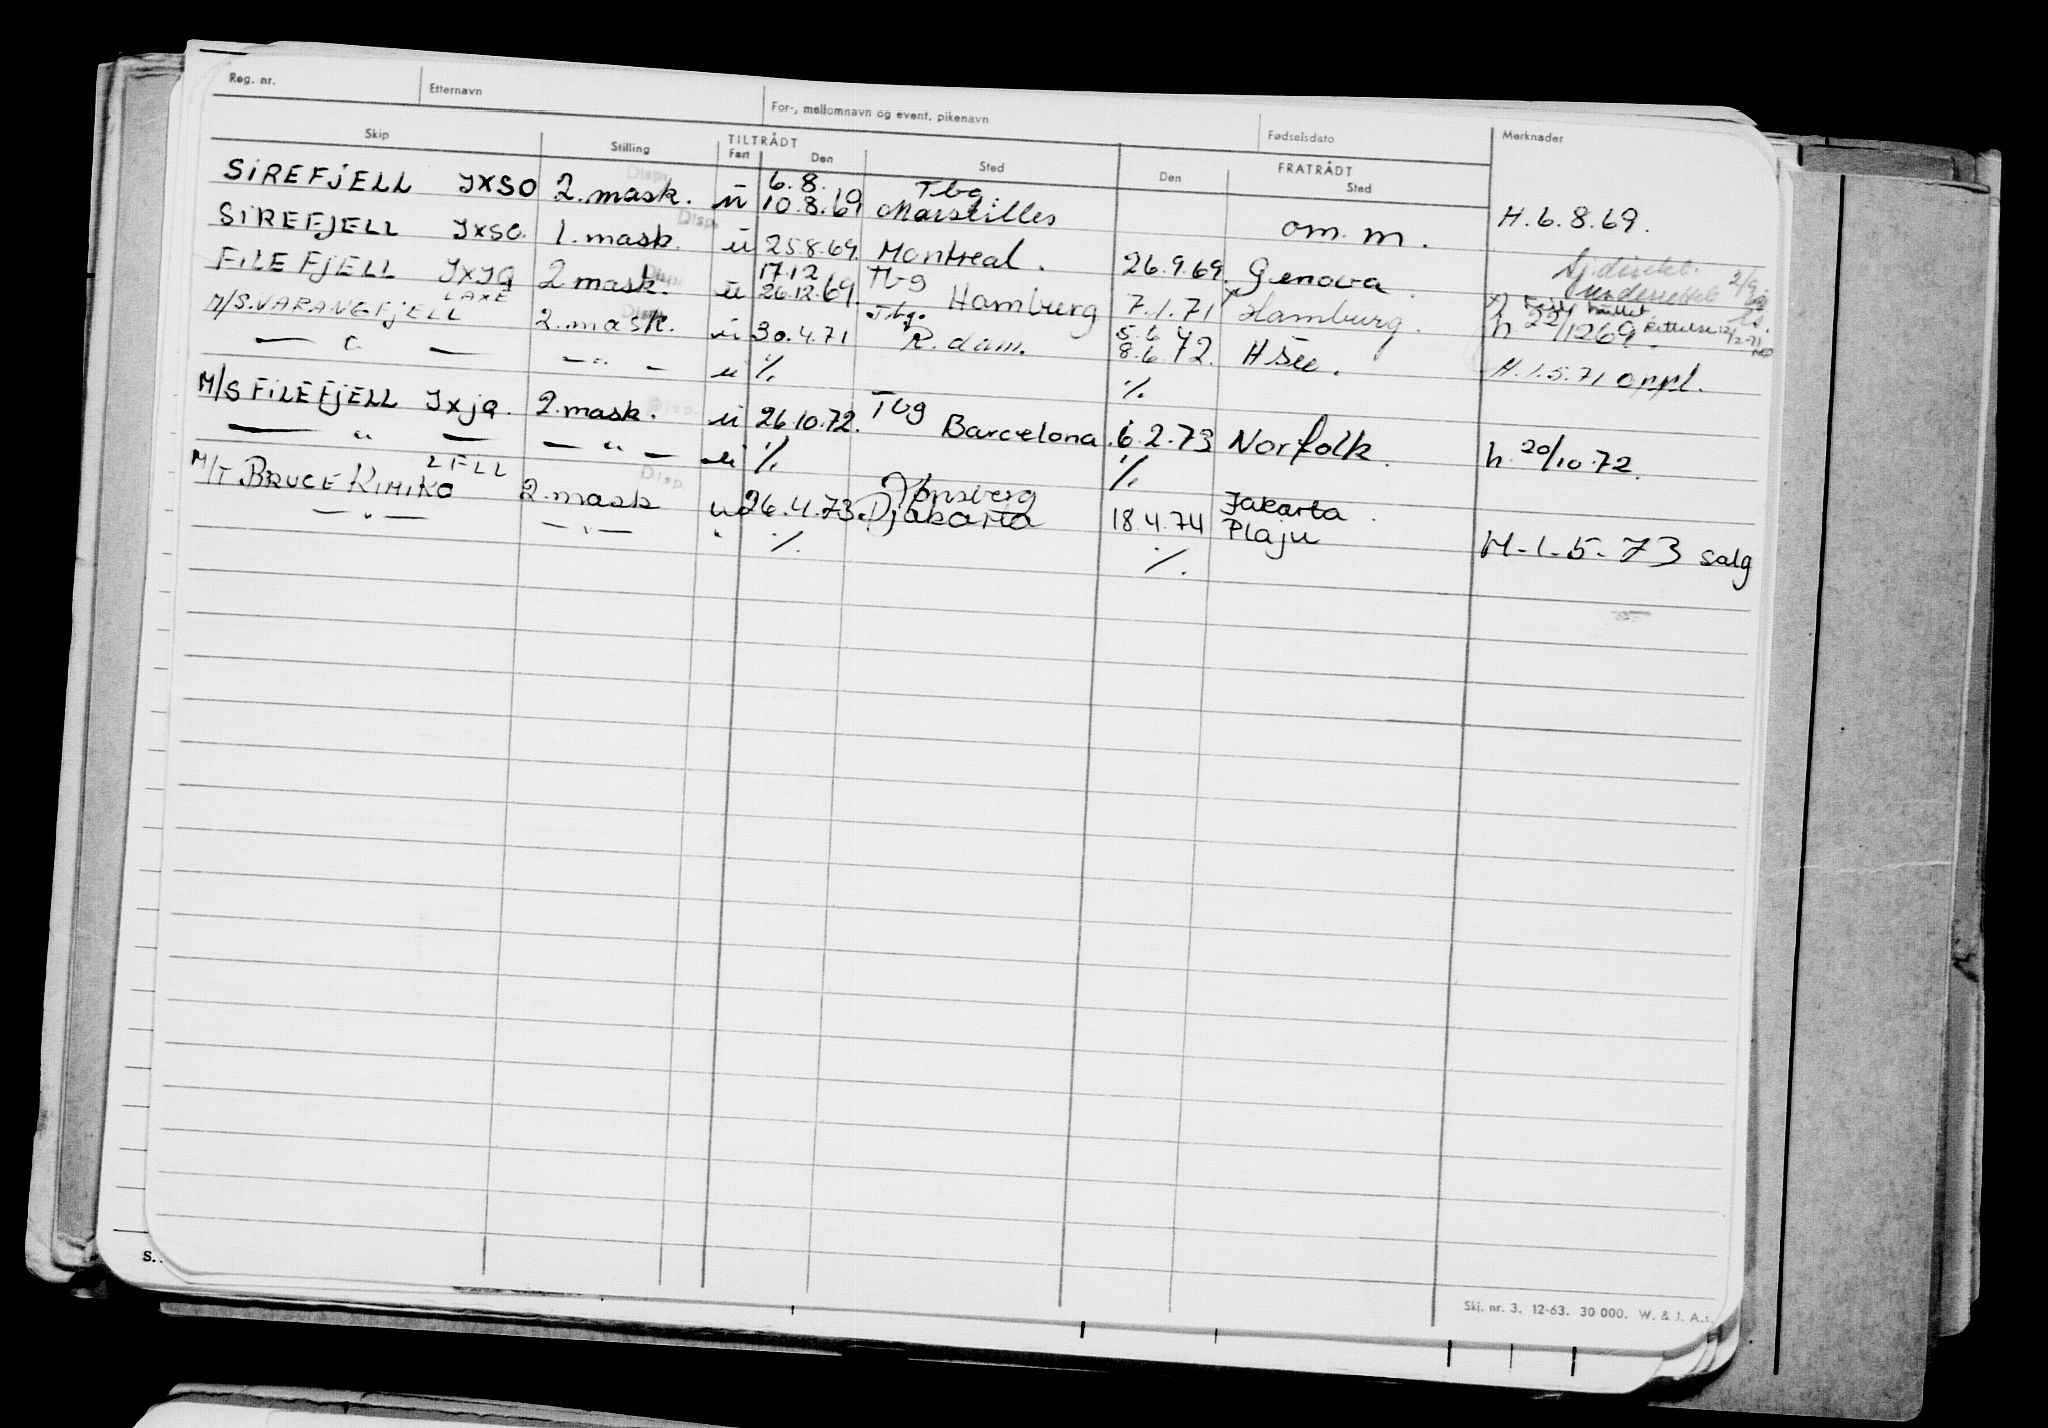 Reg. nr. Etternavn For-, mellomnavn og event. pikenavn Fødselsdato Merknader
Skip Stilling TILTRÅDT Fart Den Sted FRATRÅDT Den Sted
SIREFJELL JXSO 2. mask. Disp. u 6.8. 10.8.69 Tbg Marseilles om. m. H. 6.8.69.
SIREFJELL JXSO. 1. mask. Disp. u 25.8.69. Montreal. 26.9.69 Genova.
FILEFJELL JXJQ 2 mask. Disp. u 17.12 26.12.69. Tbg Hamburg 7.1.71 x Hamburg. h 22/12 69.
M/S. VARANGFJELL LAXE 2. mask. Disp. u 30.4.71 Tbg. R. dam. 5.6 8.6.72. H. 1.5.71 oppl.
— " — — " — u %. %.
M/S FILEFJELL JXJQ. 2. mask. Disp. u 26.10.72. Tbg Barcelona. 6.2.73 Norfolk. h. 20/10.72.
— " — — " — u %. %.
M/T BRUCE KIMIKO LFLL 2. mask Disp. u 26.4.73. Tønsberg Djakarta 18.4.74 Jakarta. Plaju H-1-5-73 salg
— " — — " — " %. %.
S.
Skj. nr. 3. 12-63. 30 000. W. & J. A.s.